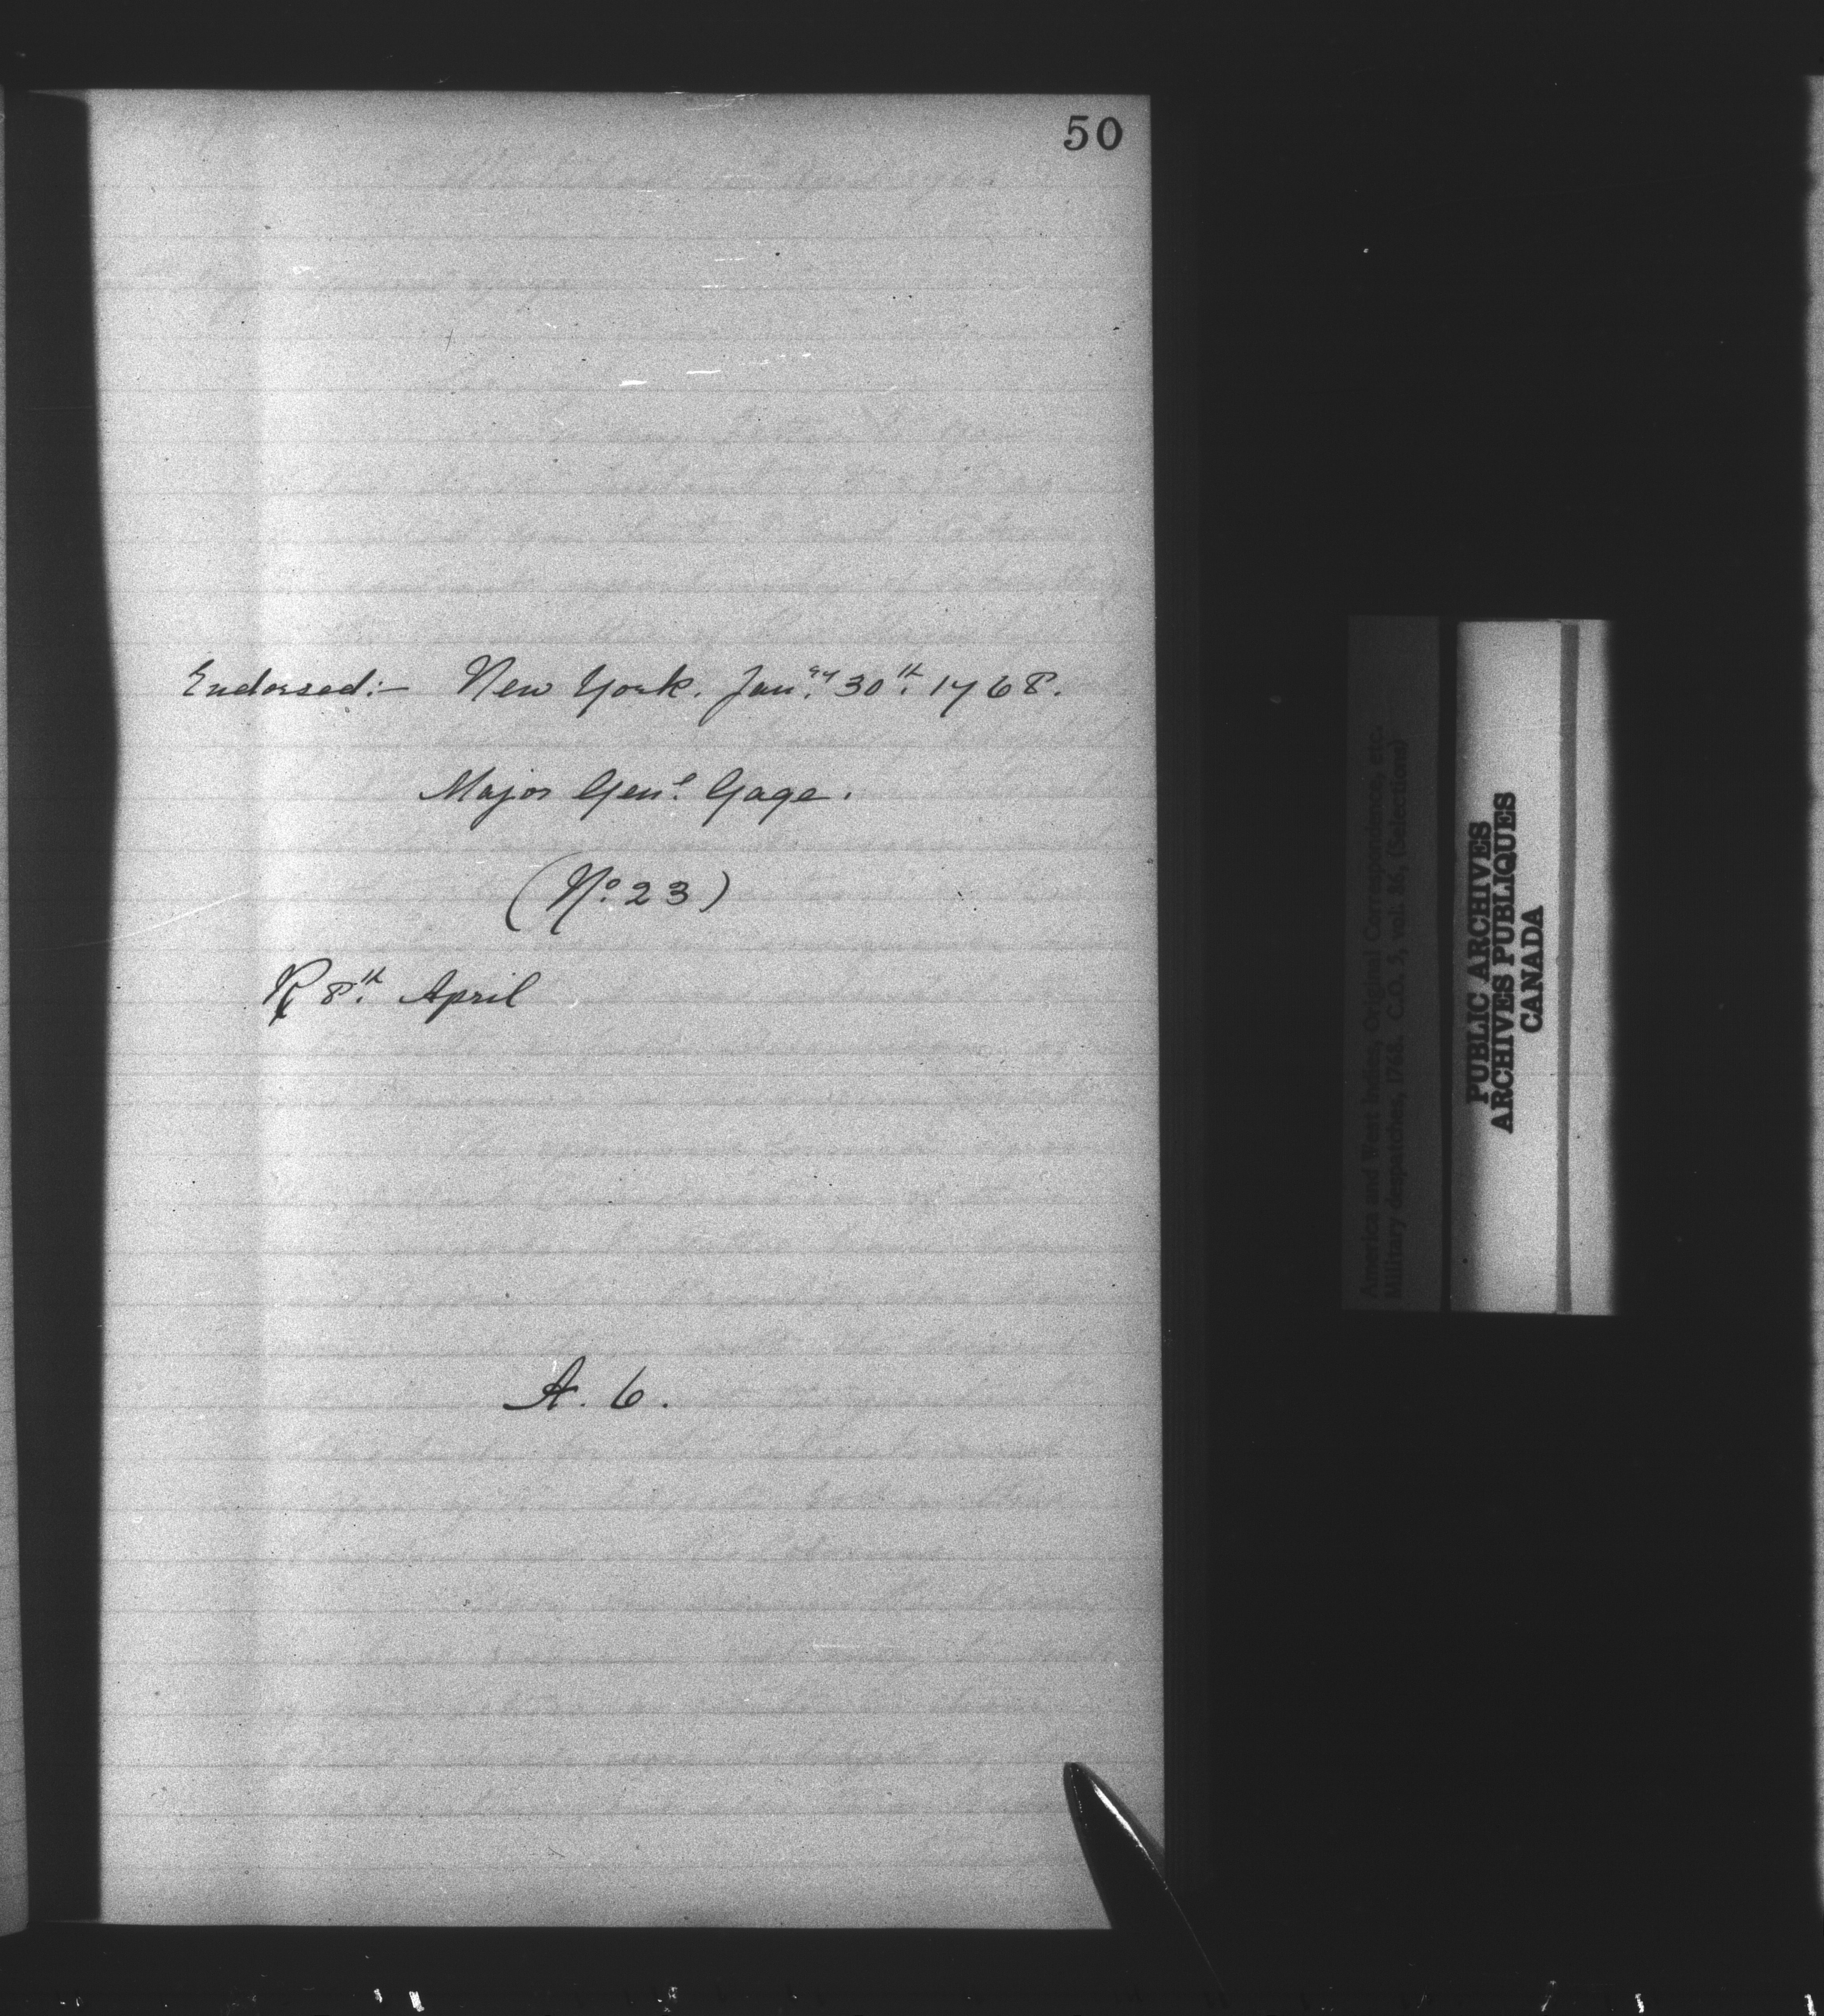 50
Endorsed:- New York. Jan.ry 30th. 1768.
Major Genl. Gage.
(No. 23)
R 8th. April
A. 6.
America and West Indies, Original Correspondence, etc.
Military despatches, 1768. C.O. 5, vol. 86, (Selections)
PUBLIC ARCHIVES
ARCHIVES PUBLIQUES
CANADA